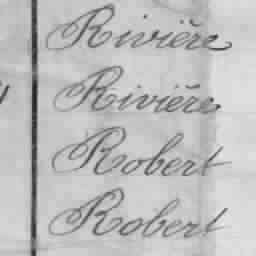 Rivière
Rivière
Robert
Robert